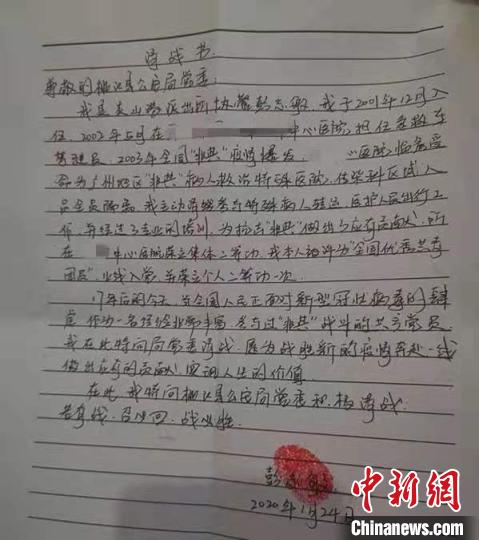 请战书
尊敬的桃江县公安局党委:
我是灰山港派出所协警彭志敏,我于2001年12月入
伍,2002年5月在 中心医院,担任急救车
驾驶员,2003年全国"非典"疫情爆发, 医院临危受
命为广州地区"非典"病人救治特殊医院,传染科区域人
员全员隔离,我主动请缨参与特殊病人转运,医护人员出行工
作,并经过了专业的培训,为抗击"非典"做出了应有贡献,所
在 中心医院荣立集体二等功,我本人被评为"全国优秀共青
团员",火线入党,并荣立个人二等功一次。
17年后的今天,当全国人民正面对新型冠状病毒的肆
虐,作为一名经验丰富,参与过"非典"战斗的共产党员,
我在此特向局党委请战,愿为战胜新的疫情奔赴一线
做出应有的贡献,实现人生的价值。
在此,我特向桃江县公安局党委积极请战,
若有战,召必回,战必胜。
彭志敏
2020年1月24日
中新网
Chinanews.com